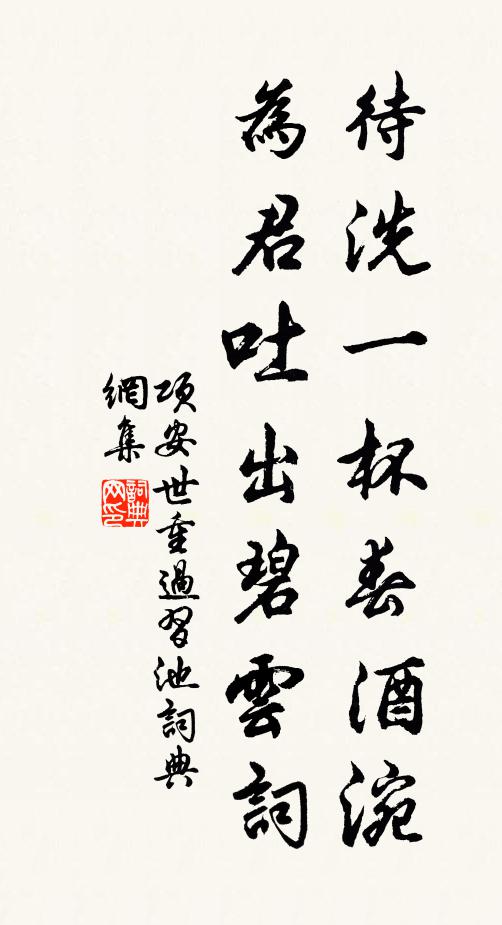 待洗一杯春酒涴
為君吐出碧雲詞
項安世重過習池詞典
網集
詞典網印